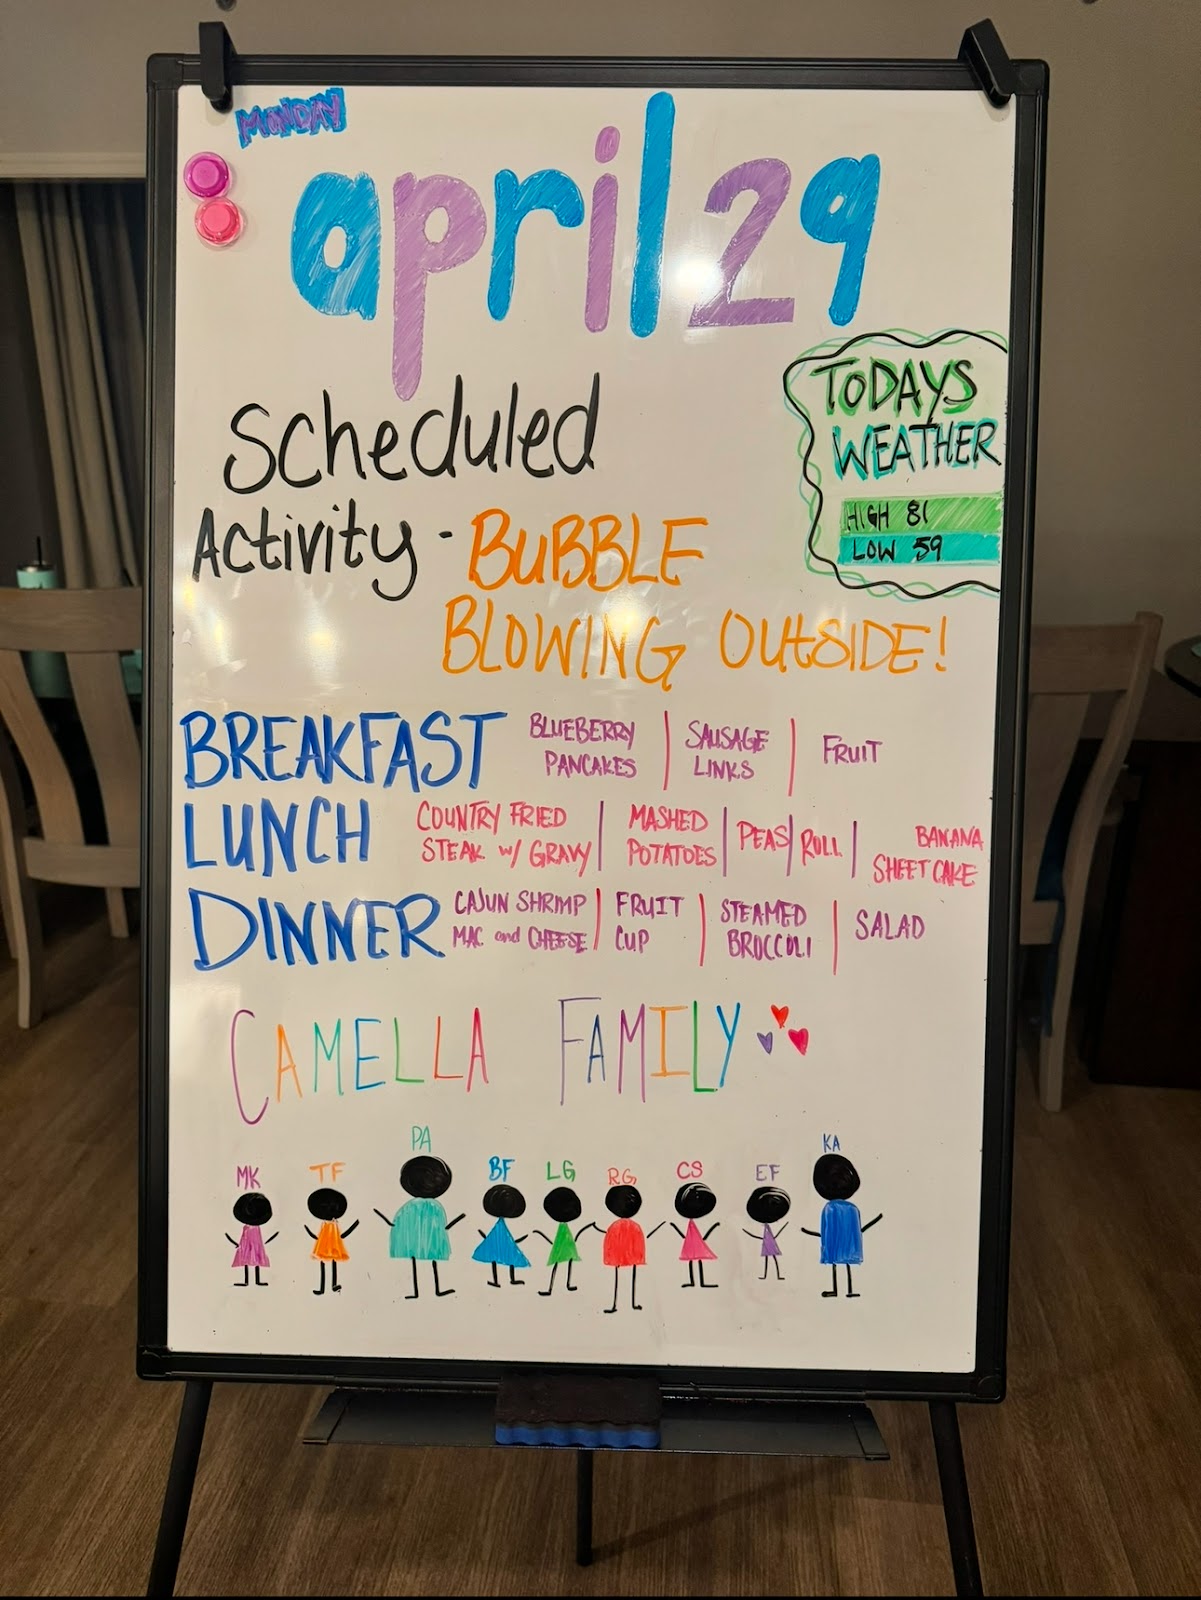 MONDAY
april 29
TODAYS
WEATHER
HIGH 81
LOW 59
Scheduled
Activity - BUBBLE
BLOWING OUTSIDE!
BREAKFAST BLUEBERRY PANCAKES | SAUSAGE LINKS | FRUIT
LUNCH COUNTRY FRIED STEAK w/ GRAVY | MASHED POTATOES | PEAS | ROLL | BANANA SHEET CAKE
DINNER CAJUN SHRIMP MAC and CHEESE | FRUIT CUP | STEAMED BROCCOLI | SALAD
CAMELLA FAMILY
MK TF PA BF LG RG CS EF KA